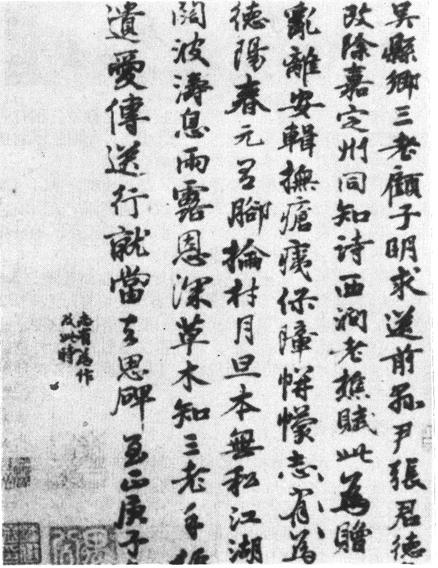 吳縣鄉三老顧子明求送前縣尹張君德
改除嘉定州同知詩西澗老樵賦此為贈
亂離安輯撫瘡痍保障帡幪志有為
德陽春元有腳掄材月旦本無私江湖
闊波濤息雨露恩深草木知三老手
遺愛傳送行就當去思碑至正庚子
志有為作
改此時